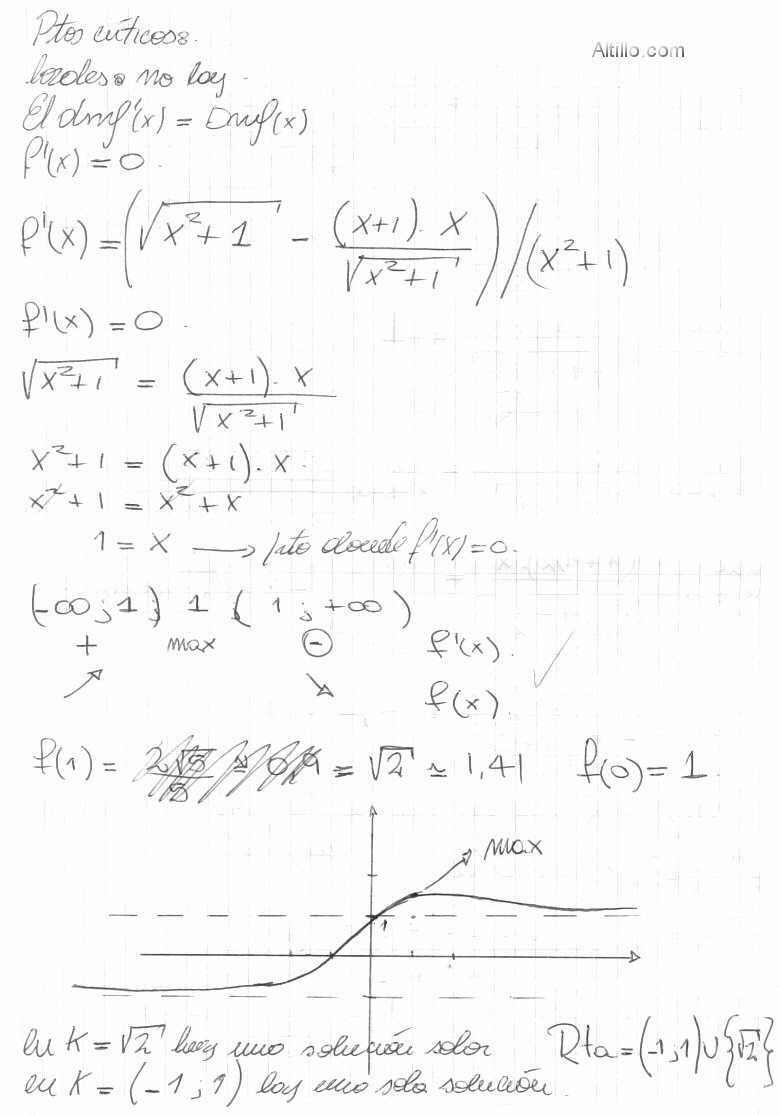 Ptos críticos:
Altillo.com
locales: no hay.
El dmf'(x) = Dmf(x)
f'(x) = 0.
f'(x) = (√(x²+1) - ((x+1).x)/√(x²+1)) / (x²+1)
f'(x) = 0.
√(x²+1) = ((x+1).x)/√(x²+1)
x²+1 = (x+1).x.
x²+1 = x²+x
1 = x → pto donde f'(x)=0.
(-∞;1) 1 (1;+∞)
+ max ⊖ f'(x).
↗ ↘ f(x). ✓
f(1) = = √2 ≃ 1,41 f(0) = 1.
max
1
en K = √2 hay una solución sola
Rta = (-1;1)∪{√2}
en K = (-1;1) hay una sola solución.